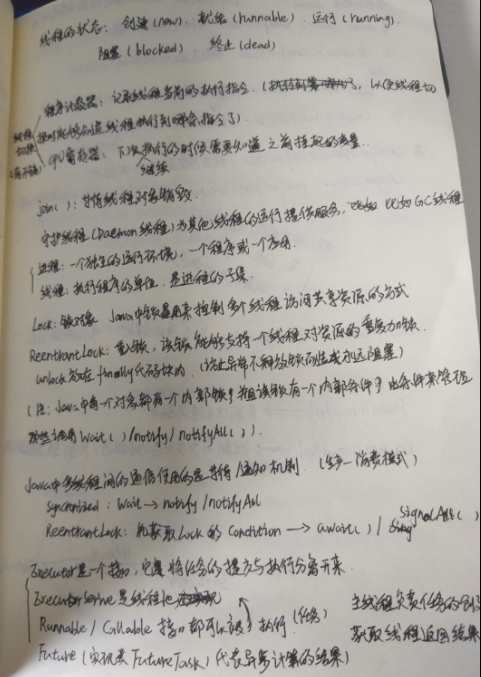 线程的状态: 创建(new). 就绪(runnable). 运行(running).
阻塞(blocked) 终止(dead)
程序计数器: 记录线程当前的执行指令. 以便线程切
线程切换(上下文) 换时能够知道线程执行到哪条指令了)
CPU寄存器: 下次执行的时候需要知道之前挂起的变量.
继续
join(): 等待线程对象销毁
守护线程(Daemon线程)为其他线程的运行提供服务, 比如GC线程
进程: 一个独立的运行环境, 一个程序或一个应用.
线程: 执行程序的单位, 是进程的子集.
Lock: 锁对象 Java中锁是用来控制多个线程访问共享资源的方式
ReentrantLock: 重入锁, 该锁能够支持一个线程对资源的重复加锁.
unlock放在finally代码块内. (防止异常不释放锁而造成永远阻塞)
(注: Java中每一个对象都有一个内部锁, 并且该锁有一个内部条件, 由条件来管理
那些调用wait()/notify/notifyAll()).
Java中多线程间的通信使用的是等待/通知机制. (生产-消费模式)
Synchnized: wait → notify/notifyAll
ReentrantLock: 先获取Lock的Condition → await()/ SignalAll()
Executor是一个接口, 它是将任务的提交与执行分离开来.
ExecutorServie是线程池
Runnable/Callable 接口都可以被执行(任务) 主线程负责任务的创建
Future(实现类FutureTask)代表异步计算的结果) 获取线程返回结果